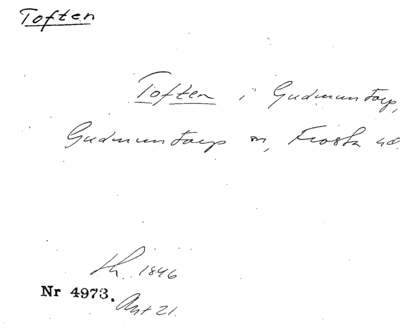 Toften
Toften i Gudmuntorp,
Gudmuntorp sn, Frosta hd.
1846
Nr 4973.
21.